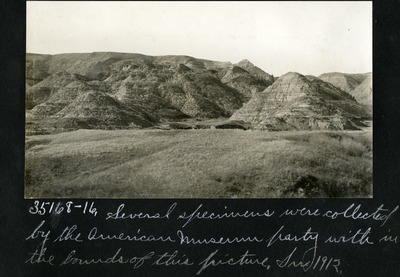 35168-16, Several specimens were collected
by the American Museum party with in
the bounds of this picture, 1913.